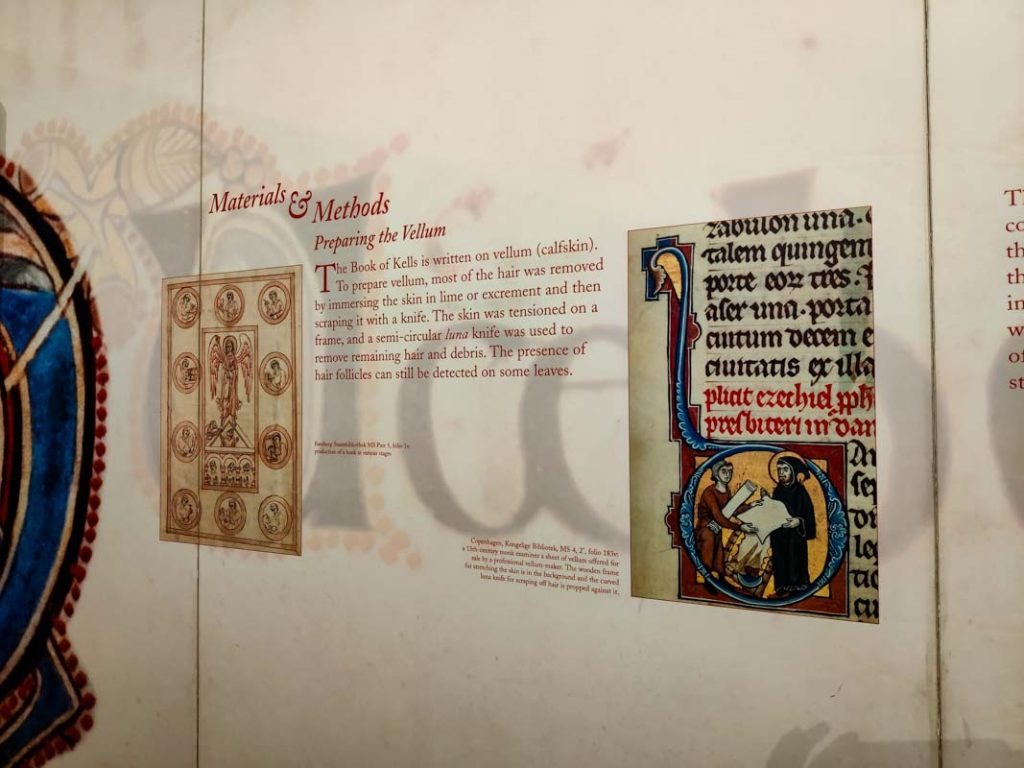 Materials & Methods
Preparing the Vellum
The Book of Kells is written on vellum (calfskin).
To prepare vellum, most of the hair was removed
by immersing the skin in lime or excrement and then
scraping it with a knife. The skin was tensioned on a
frame, and a semi-circular luna knife was used to
remove remaining hair and debris. The presence of
hair follicles can still be detected on some leaves.
Bamberg Staatsbibliothek MS Patr 5, folio 1v
production of a book in various stages
Copenhagen, Kongelige Bibliotek, MS 4, 2°, folio 183v:
a 13th-century monk examines a sheet of vellum offered for
sale by a professional vellum-maker. The wooden frame
for stretching the skin is in the background and the curved
luna knife for scraping off hair is propped against it.
zabulon una.
talem quingem
porte eorz tres.
aser una. porta
cuitum decem e
ciuitatis ex illa
plicit ezechiel pph
presbiteri in dan